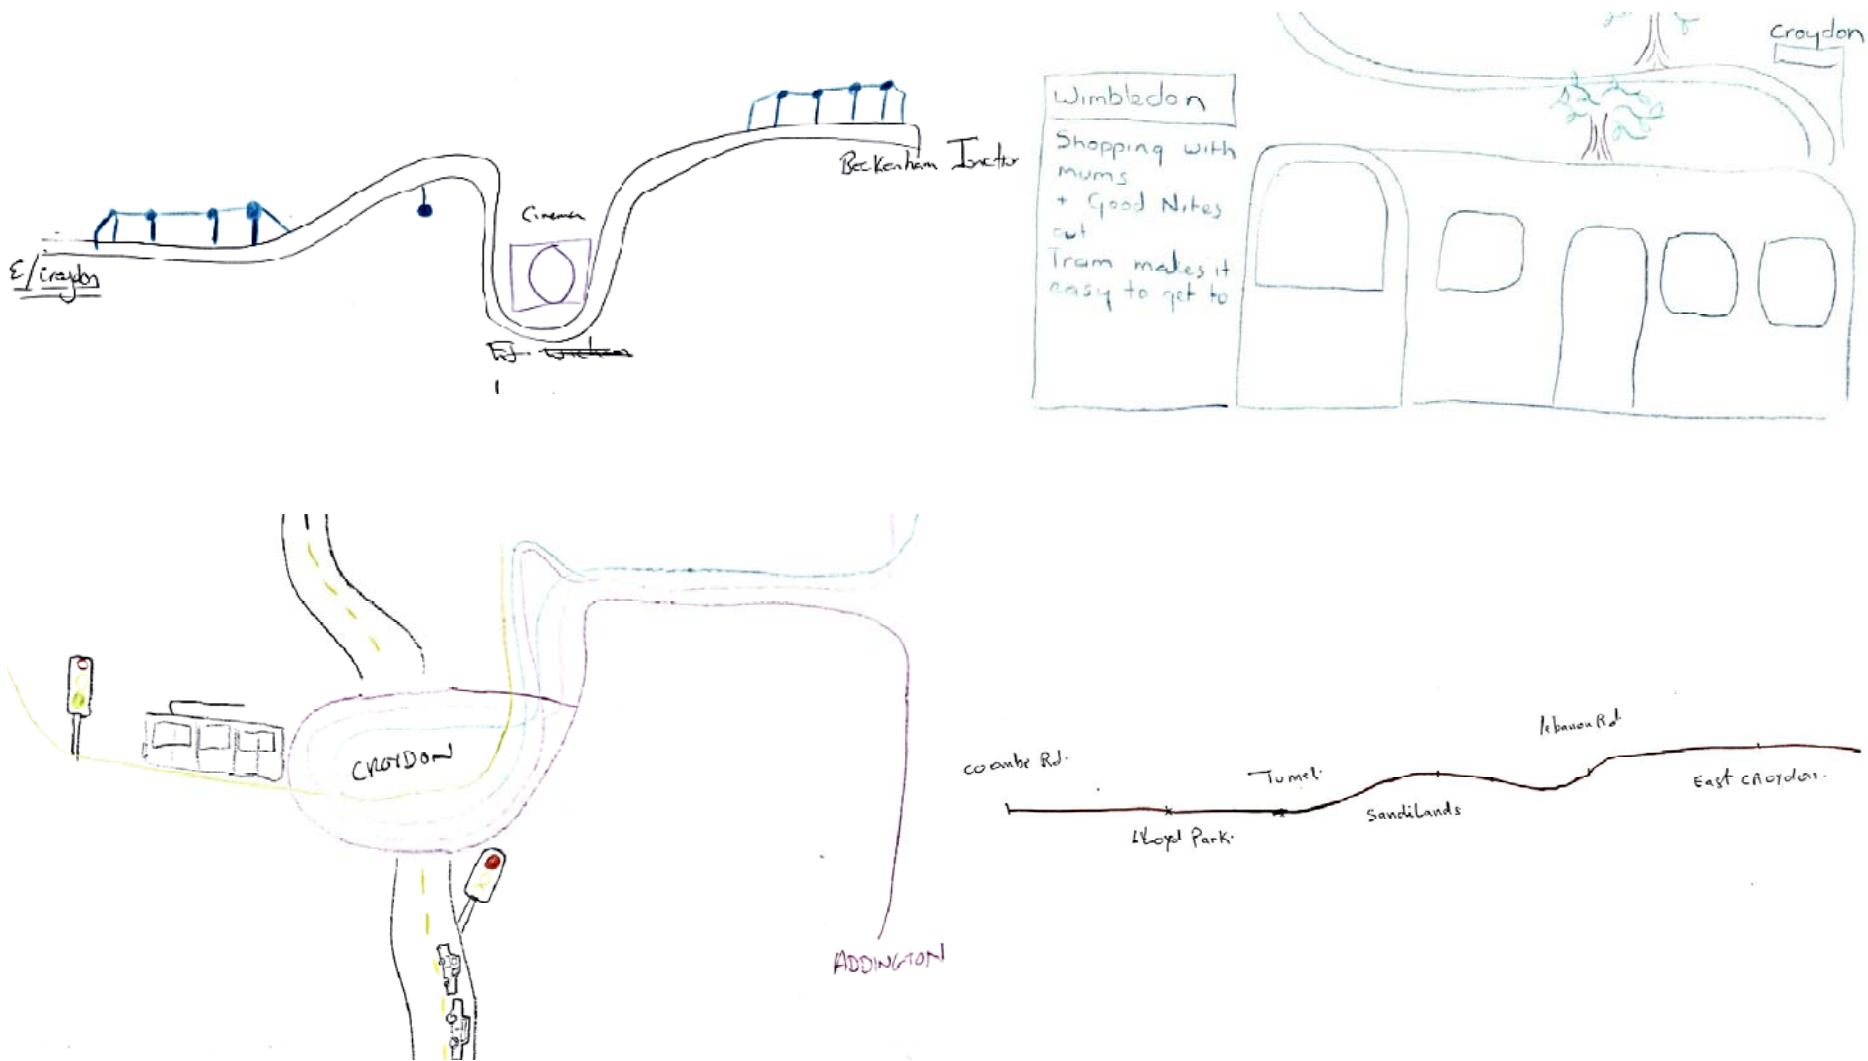 E/Croydon
Cinema
Beckenham Junction
Croydon
Wimbledon
Shopping with
mums
+ Good Nites
out
Tram makes it
easy to get to
CROYDON
ADDINGTON
Coombe Rd.
Lloyd Park.
Tunnel.
Sandilands
lebanon Rd.
East Croydon.